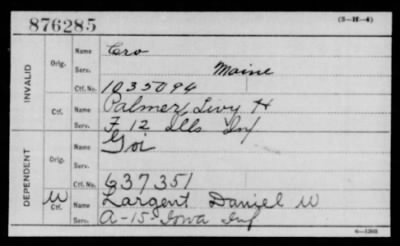 876285
(3-H-4)
INVALID
Orig.
Name
Cro
Serv.
Maine
Ctf. No.
1035094
Ctf.
Name
Palmer, Livy H
Serv.
F 12 Ills Inf
DEPENDENT
Orig.
Name
Goi
Serv.
Ctf. No.
637351
W
Ctf.
Name
Largent Daniel W
Serv.
A-15 Iowa Inf